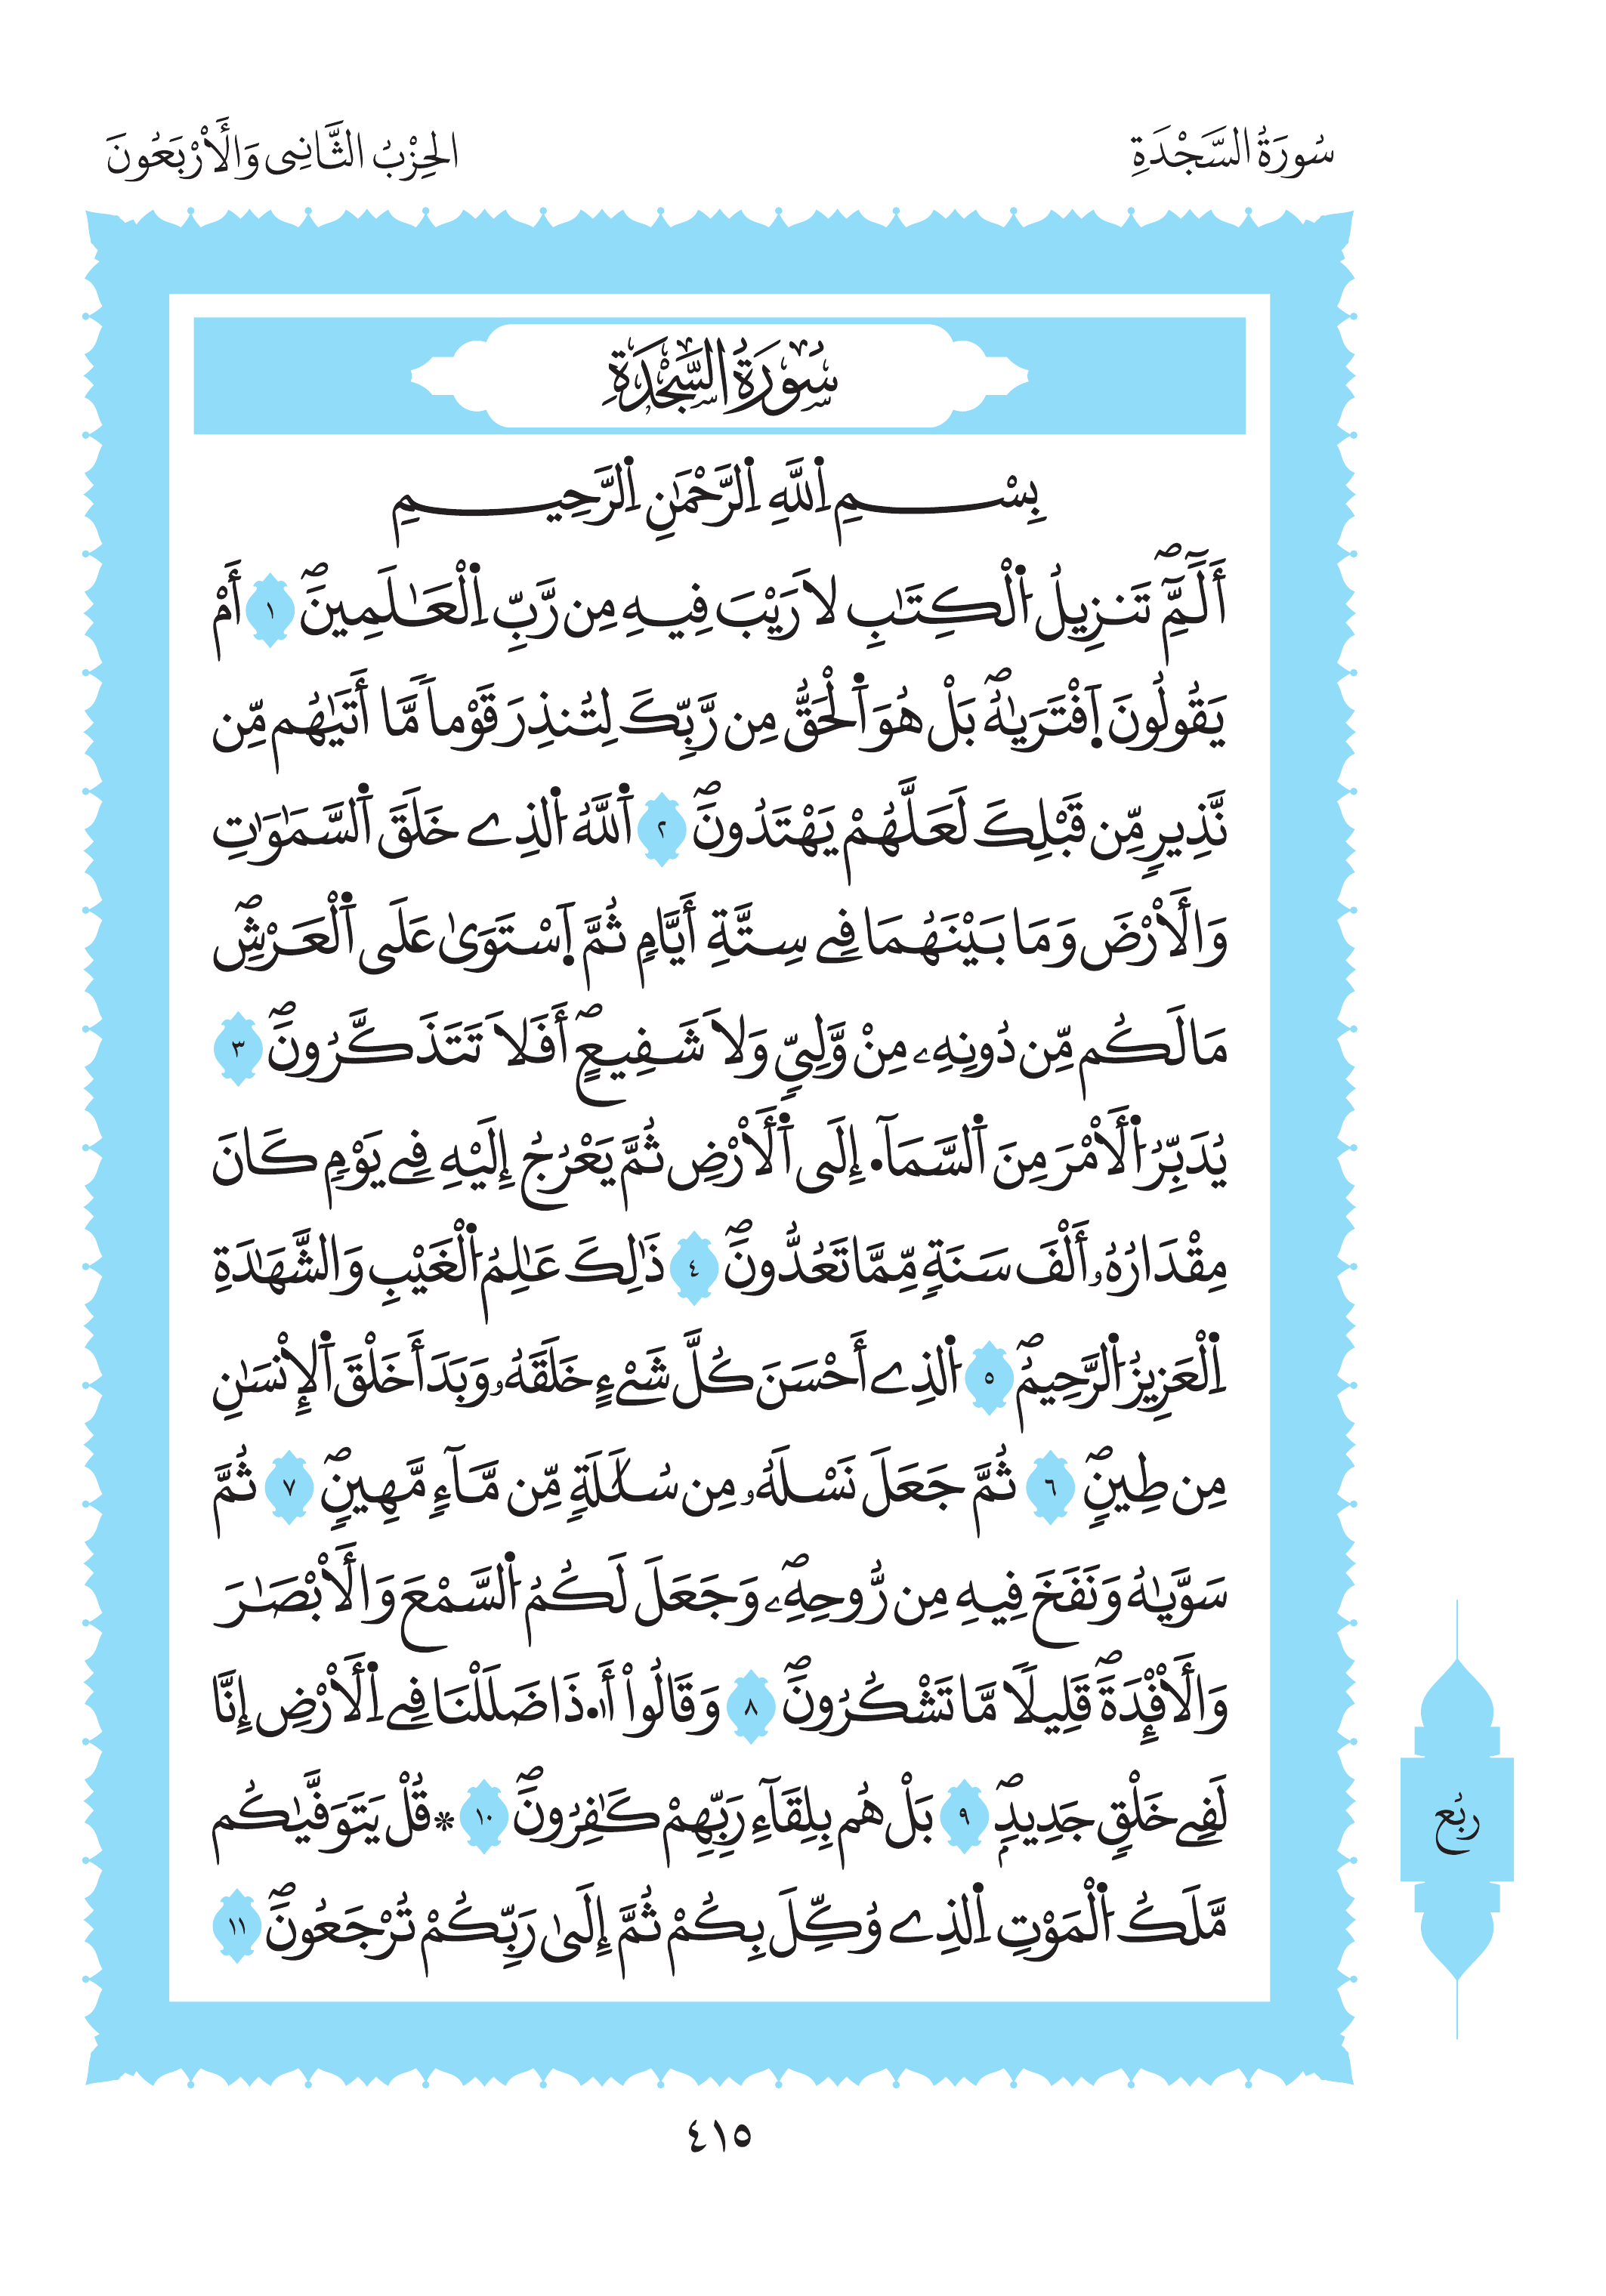 سُورَةُ السَّجْدَةِ
الحِزْبُ الثَّانِى وَالَأرْبَعُونَ
سُورَةُ السَّجْدَةِ
بِسْمِ اِ۬للَّهِ اِ۬لرَّحْمَٰنِ اِ۬لرَّحِيمِ
أَلَٓمِّٓۖ تَنزِيلُ اُ۬لْكِتَٰبِ لَا رَيْبَ فِيهِ مِن رَّبِّ اِ۬لْعَٰلَمِينَۖ ١ أَمْ
يَقُولُونَ اَ۪فْتَر۪يٰهُۖ بَلْ هُوَ اَ۬لْحَقُّ مِن رَّبِّكَ لِتُنذِرَ قَوْماٗ مَّآ أَت۪يٰهُم مِّن
نَّذِيرٖ مِّن قَبْلِكَ لَعَلَّهُمْ يَهْتَدُونَۖ ٢ اَ۬للَّهُ اُ۬لذِے خَلَقَ اَ۬لسَّمَٰوَٰتِ
وَالَأرْضَ وَمَا بَيْنَهُمَا فِے سِتَّةِ أَيَّامٖ ثُمَّ اَ۪سْتَو۪يٰ عَلَى اَ۬لْعَرْشِۖ
مَا لَكُم مِّن دُونِهِۦ مِنْ وَّلِيّٖ وَلَا شَفِيعٍۖ أَفَلَا تَتَذَكَّرُونَۖ ٣
يُدَبِّرُ اُ۬لَأمْرَ مِنَ اَ۬لسَّمَآ۰ إِلَى اَ۬لَأرْضِ ثُمَّ يَعْرُجُ إِلَيْهِ فِے يَوْمٖ كَانَ
مِقْدَارُهُۥ أَلْفَ سَنَةٖ مِّمَّا تَعُدُّونَۖ ٤ ذَٰلِكَ عَٰلِمُ اُ۬لْغَيْبِ وَالشَّهَٰدَةِ
اِ۬لْعَزِيزُ اُ۬لرَّحِيمُۖ ٥ اُ۬لذِے أَحْسَنَ كُلَّ شَےْءٍ خَلَقَهُۥ وَبَدَأَ خَلْقَ اَ۬لِانسَٰنِ
مِن طِينٖۖ ٦ ثُمَّ جَعَلَ نَسْلَهُۥ مِن سُلَٰلَةٖ مِّن مَّآءٖ مَّهِينٖۖ ٧ ثُمَّ
سَوّ۪يٰهُ وَنَفَخَ فِيهِ مِن رُّوحِهِۦۖ وَجَعَلَ لَكُمُ اُ۬لسَّمْعَ وَالَأبْصَٰرَ
وَالَأفْـِٕدَةَۖ قَلِيلاٗ مَّا تَشْكُرُونَۖ ٨ وَقَالُوٓاْ أَ۟۰ذَا ضَلَلْنَا فِے اِ۬لَأرْضِ إِنَّا
لَفِے خَلْقٖ جَدِيدِۢۖ ٩ بَلْ هُم بِلِقَآءِ رَبِّهِمْ كَٰفِرُونَۖ ١٠ * قُلْ يَتَوَفّ۪يٰكُم
مَّلَكُ اُ۬لْمَوْتِ اِ۬لذِے وُكِّلَ بِكُمْ ثُمَّ إِلَىٰ رَبِّكُمْ تُرْجَعُونَۖ ١١
ربُع
٤١٥